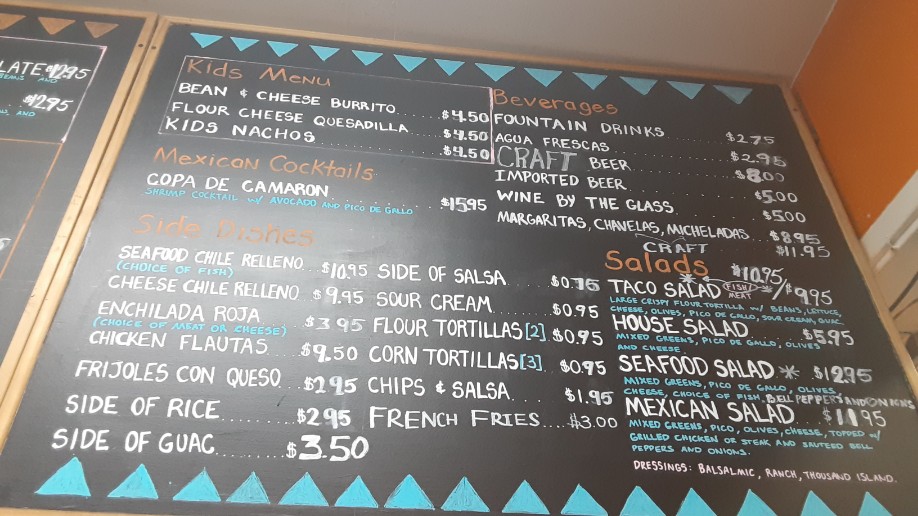 LATE $12.95
$12.95
Kids Menu
BEAN & CHEESE BURRITO $4.50
FLOUR CHEESE QUESADILLA $4.50
KIDS NACHOS $4.50
Mexican Cocktails
COPA DE CAMARON $15.95
SHRIMP COCKTAIL W/ AVOCADO AND PICO DE GALLO
Side Dishes
SEAFOOD CHILE RELLENO... $10.95
(CHOICE OF FISH)
CHEESE CHILE RELLENO... $9.95
ENCHILADA ROJA $3.95
(CHOICE OF MEAT OR CHEESE)
CHICKEN FLAUTAS $9.50
FRIJOLES CON QUESO... $2.95
SIDE OF RICE $2.95
SIDE OF GUAC $3.50
SIDE OF SALSA $0.75
SOUR CREAM $0.95
FLOUR TORTILLAS [2] $0.95
CORN TORTILLAS [3] $0.95
CHIPS & SALSA $1.95
FRENCH FRIES.... $3.00
Beverages
FOUNTAIN DRINKS $2.75
AGUA FRESCAS $2.95
CRAFT BEER $8.00
IMPORTED BEER $5.00
WINE BY THE GLASS $5.00
MARGARITAS, CHAVELAS, MICHELADAS... $8.95
CRAFT $11.95
Salads
TACO SALAD * (FISH/MEAT) $10.95/$9.95
LARGE CRISPY FLOUR TORTILLA W/ BEANS, LETTUCE,
CHEESE, OLIVES, PICO DE GALLO, SOUR CREAM, GUAC.
HOUSE SALAD $5.95
MIXED GREENS, PICO DE GALLO, OLIVES
AND CHEESE
SEAFOOD SALAD * $12.95
MIXED GREENS, PICO DE GALLO, OLIVES,
CHEESE, CHOICE OF FISH. BELL PEPPERS AND ONIONS
MEXICAN SALAD $11.95
MIXED GREENS, PICO, OLIVES, CHEESE, TOPPED W/
GRILLED CHICKEN OR STEAK AND SAUTEED BELL
PEPPERS AND ONIONS.
DRESSINGS: BALSALMIC, RANCH, THOUSAND ISLAND.